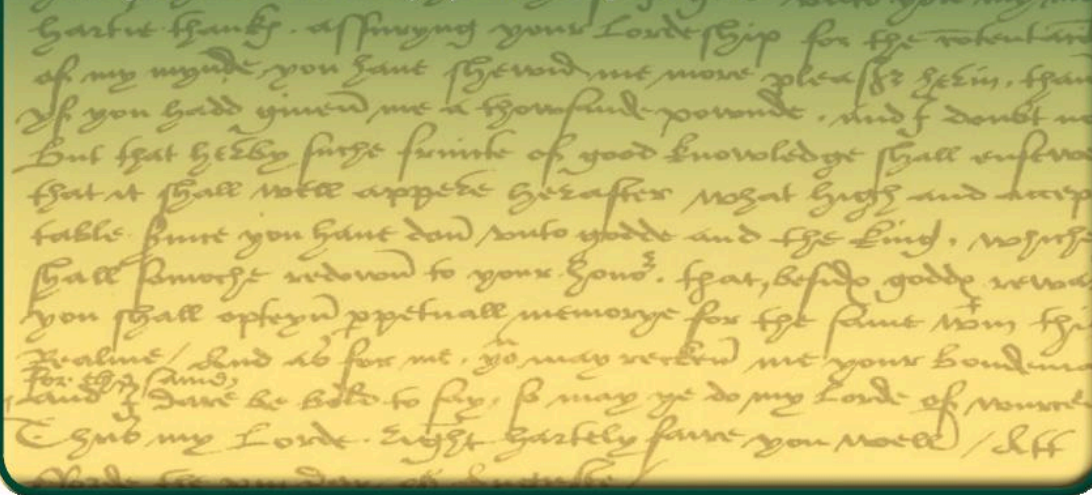 vnto you my m
hartie thankℯ . assuryng your Lordeship for the cōtentac
of my mynde, you haue shewid me more pleasᵘʳ herin, than
yf you hadd giuen̄ me a thowsande powndℯ . And I doubt n
But that herby suche fruicte of good knowledge shall ensew
that it shall well appere herafter what high and accep
table . seruice you haue don̄ vnto godde and the King . which
shall somoche redown̄ to your honoʳ . that, besidℯ goddℯ rewa
you shall opteyn̄ ꝑpetuall memorye for the same wᵗin thi
Realme / And as for me . yoᵘ may recken̄ me your bondema
for the same,
and I dare be bold to say . so may ye do my Lorde of worce
Thus my Lorde . right hartely fare you well / Att
Forde the xiii day of Auguste